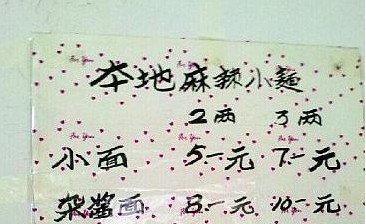 本地麻辣小麵
2两 3两
小面 5.-元 7.-元
杂酱面 8.-元 10.-元
For You